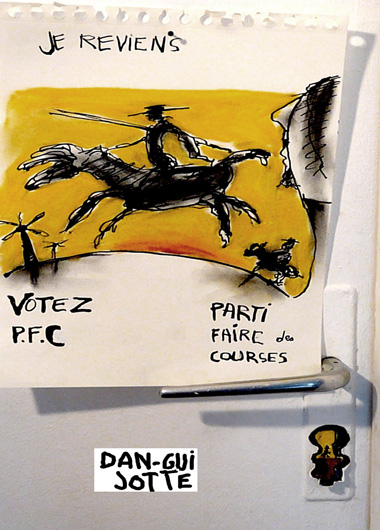 JE REVIENS
VOTEZ
P.F.C
PARTI
FAIRE des
COURSES
DAN-GUI
JOTTE